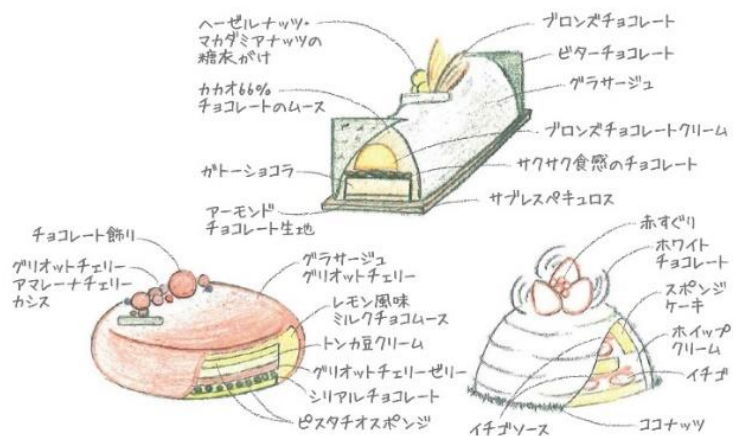 ヘーゼルナッツ・
マカダミアナッツの
糖衣がけ
カカオ66%
チョコレートのムース
ガトーショコラ
アーモンド
チョコレート生地
ブロンズチョコレート
ビターチョコレート
グラサージュ
ブロンズチョコレートクリーム
サクサク食感のチョコレート
サブレスペキュロス
チョコレート飾り
グリオットチェリー
アマレーナチェリー
カシス
グラサージュ
グリオットチェリー
レモン風味
ミルクチョコムース
トンカ豆クリーム
グリオットチェリーゼリー
シリアルチョコレート
ピスタチオスポンジ
赤すぐり
ホワイト
チョコレート
スポンジ
ケーキ
ホイップ
クリーム
イチゴ
ココナッツ
イチゴソース